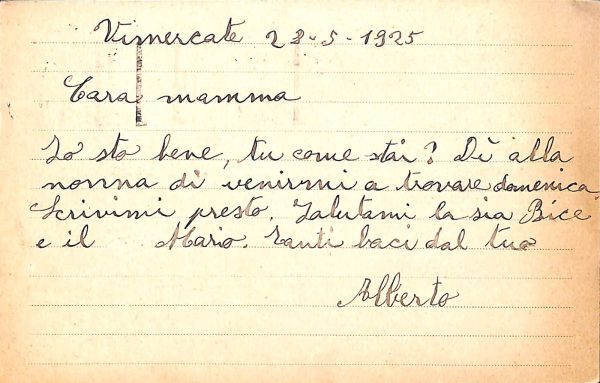 Vimercate 28-5-1925
Cara mamma
Io sto bene, tu come stai? Dì alla
nonna di venirmi a trovare domenica.
Scrivimi presto. Salutami la sia Bice
e il Mario. Tanti baci dal tuo
Alberto